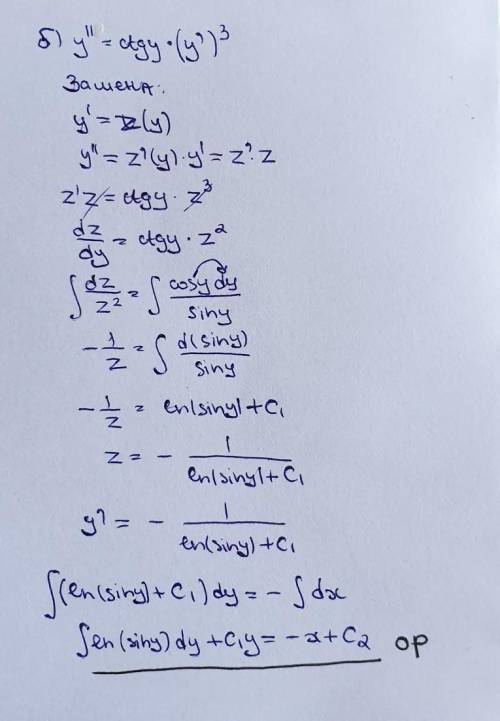 б) y'' = ctgy · (y')³
Замена:
y' = z(y)
y'' = z'(y) · y' = z' · z
z'z = ctgy · z³
dz/dy = ctgy · z²
∫ dz/z² = ∫ cosy dy/siny
-1/z = ∫ d(siny)/siny
-1/z = ln|siny| + C₁
z = - 1/(ln|siny| + C₁)
y' = - 1/(ln|siny| + C₁)
∫(ln|siny| + C₁) dy = - ∫ dx
∫ln|siny| dy + C₁y = -x + C₂ ОР